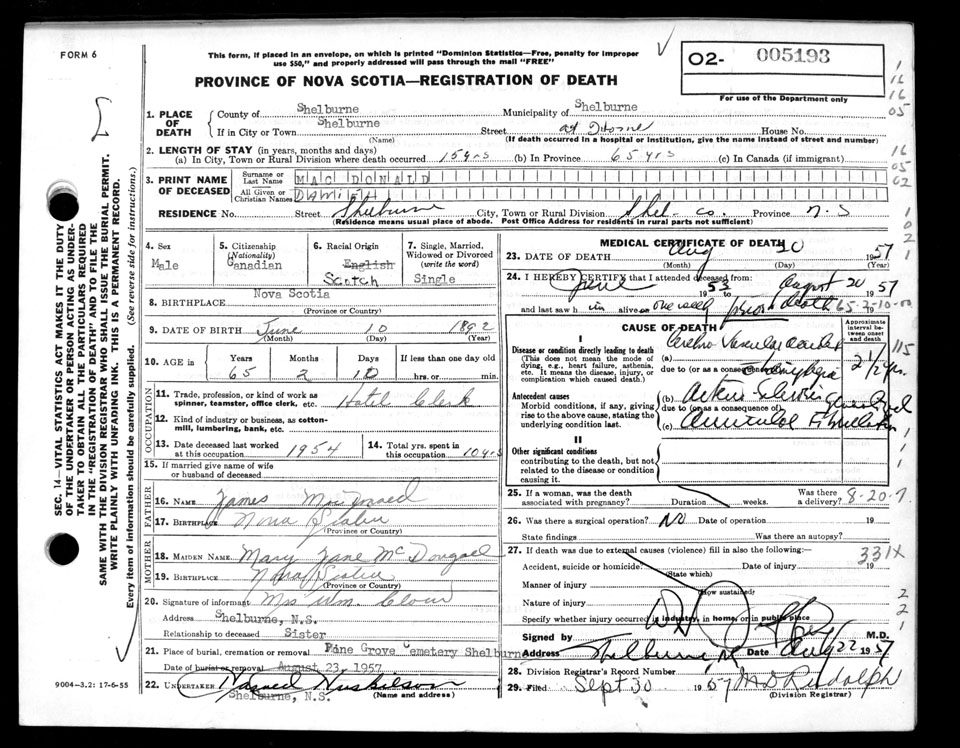 FORM 6
This form, if placed in an envelope, on which is printed "Dominion Statistics—Free, penalty for improper
use $50," and properly addressed will pass through the mail "FREE"
PROVINCE OF NOVA SCOTIA—REGISTRATION OF DEATH
O2- 005193
For use of the Department only
1. PLACE OF DEATH
County of Shelburne Municipality of Shelburne
If in City or Town Shelburne Street at Home House No.
(Name) (If death occurred in a hospital or institution, give the name instead of street and number)
2. LENGTH OF STAY (in years, months and days)
(a) In City, Town or Rural Division where death occurred 15 yrs (b) In Province 65 yrs (c) In Canada (if immigrant)
3. PRINT NAME OF DECEASED
Surname or Last Name MAC DONALD
All Given or Christian Names
RESIDENCE No. Street Shelburne City, Town or Rural Division Shel- Co. Province N.S
(Residence means usual place of abode. Post Office Address for residents in rural parts not sufficient)
4. Sex Male
5. Citizenship (Nationality) Canadian
6. Racial Origin English Scotch
7. Single, Married, Widowed or Divorced (write the word) Single
8. BIRTHPLACE Nova Scotia
(Province or Country)
9. DATE OF BIRTH June 10 1892
(Month) (Day) (Year)
10. AGE in Years 65 Months 2 Days 10 If less than one day old hrs. or min.
OCCUPATION
11. Trade, profession, or kind of work as spinner, teamster, office clerk, etc. Hotel Clerk
12. Kind of industry or business, as cotton-mill, lumbering, bank, etc.
13. Date deceased last worked at this occupation 1954
14. Total yrs. spent in this occupation 10 yrs
15. If married give name of wife or husband of deceased
FATHER
16. NAME James MacDonald
17. BIRTHPLACE Nova Scotia
(Province or Country)
MOTHER
18. MAIDEN NAME Mary Jane McDougall
19. BIRTHPLACE Nova Scotia
(Province or Country)
20. Signature of informant Mrs Wm.
Address Shelburne, N.S.
Relationship to deceased Sister
21. Place of burial, cremation or removal Pine Grove Cemetery Shelburne
Date of burial or removal August 23, 1957
22. UNDERTAKER
Shelburne, N.S. (Name and address)
9004—3.2: 17-6-55
SEC. 14—VITAL STATISTICS ACT MAKES IT THE DUTY
OF THE UNDERTAKER OR PERSON ACTING AS UNDERTAKER
TO OBTAIN ALL THE PARTICULARS REQUIRED
IN THE "REGISTRATION OF DEATH" AND TO FILE THE
SAME WITH THE DIVISION REGISTRAR WHO SHALL ISSUE THE BURIAL PERMIT.
WRITE PLAINLY WITH UNFADING INK. THIS IS A PERMANENT RECORD.
Every item of information should be carefully supplied. (See reverse side for instructions.)
MEDICAL CERTIFICATE OF DEATH
23. DATE OF DEATH Aug 20 1957
(Month) (Day) (Year)
24. I HEREBY CERTIFY that I attended deceased from:
June 1953 to August 20 1957
and last saw him alive on one week prior death 65-2-10-00
CAUSE OF DEATH
Approximate interval between onset and death
I
Disease or condition directly leading to death
(This does not mean the mode of dying, e.g., heart failure, asthenia, etc. It means the disease, injury, or complication which caused death.)
(a) Cerebro Vascular Accident
due to (or as a consequence of) 2 1/2 yrs.
Antecedent causes
Morbid conditions, if any, giving rise to the above cause, stating the underlying condition last.
(b) Arterio Sclerosis Generalized
due to (or as a consequence of)
(c) Auricular Fibrillation
II
Other significant conditions
contributing to the death, but not related to the disease or condition causing it.
25. If a woman, was the death associated with pregnancy? Duration weeks. Was there a delivery? 8-20-7
26. Was there a surgical operation? No Date of operation 19
State findings Was there an autopsy?
27. If death was due to external causes (violence) fill in also the following:—
Accident, suicide or homicide (State which) Date of injury 19
331X
Manner of injury
(How sustained)
Nature of injury
Specify whether injury occurred in industry, in home, or in public place
Signed by M.D.
Address Shelburne, NS Date Aug 22 1957
28. Division Registrar's Record Number
29. Filed Sept 30 1957 Rudolph
(Division Registrar)
1
16
16
05
16
05
02
1
0
2
1
115
1
1
1
2
2
1